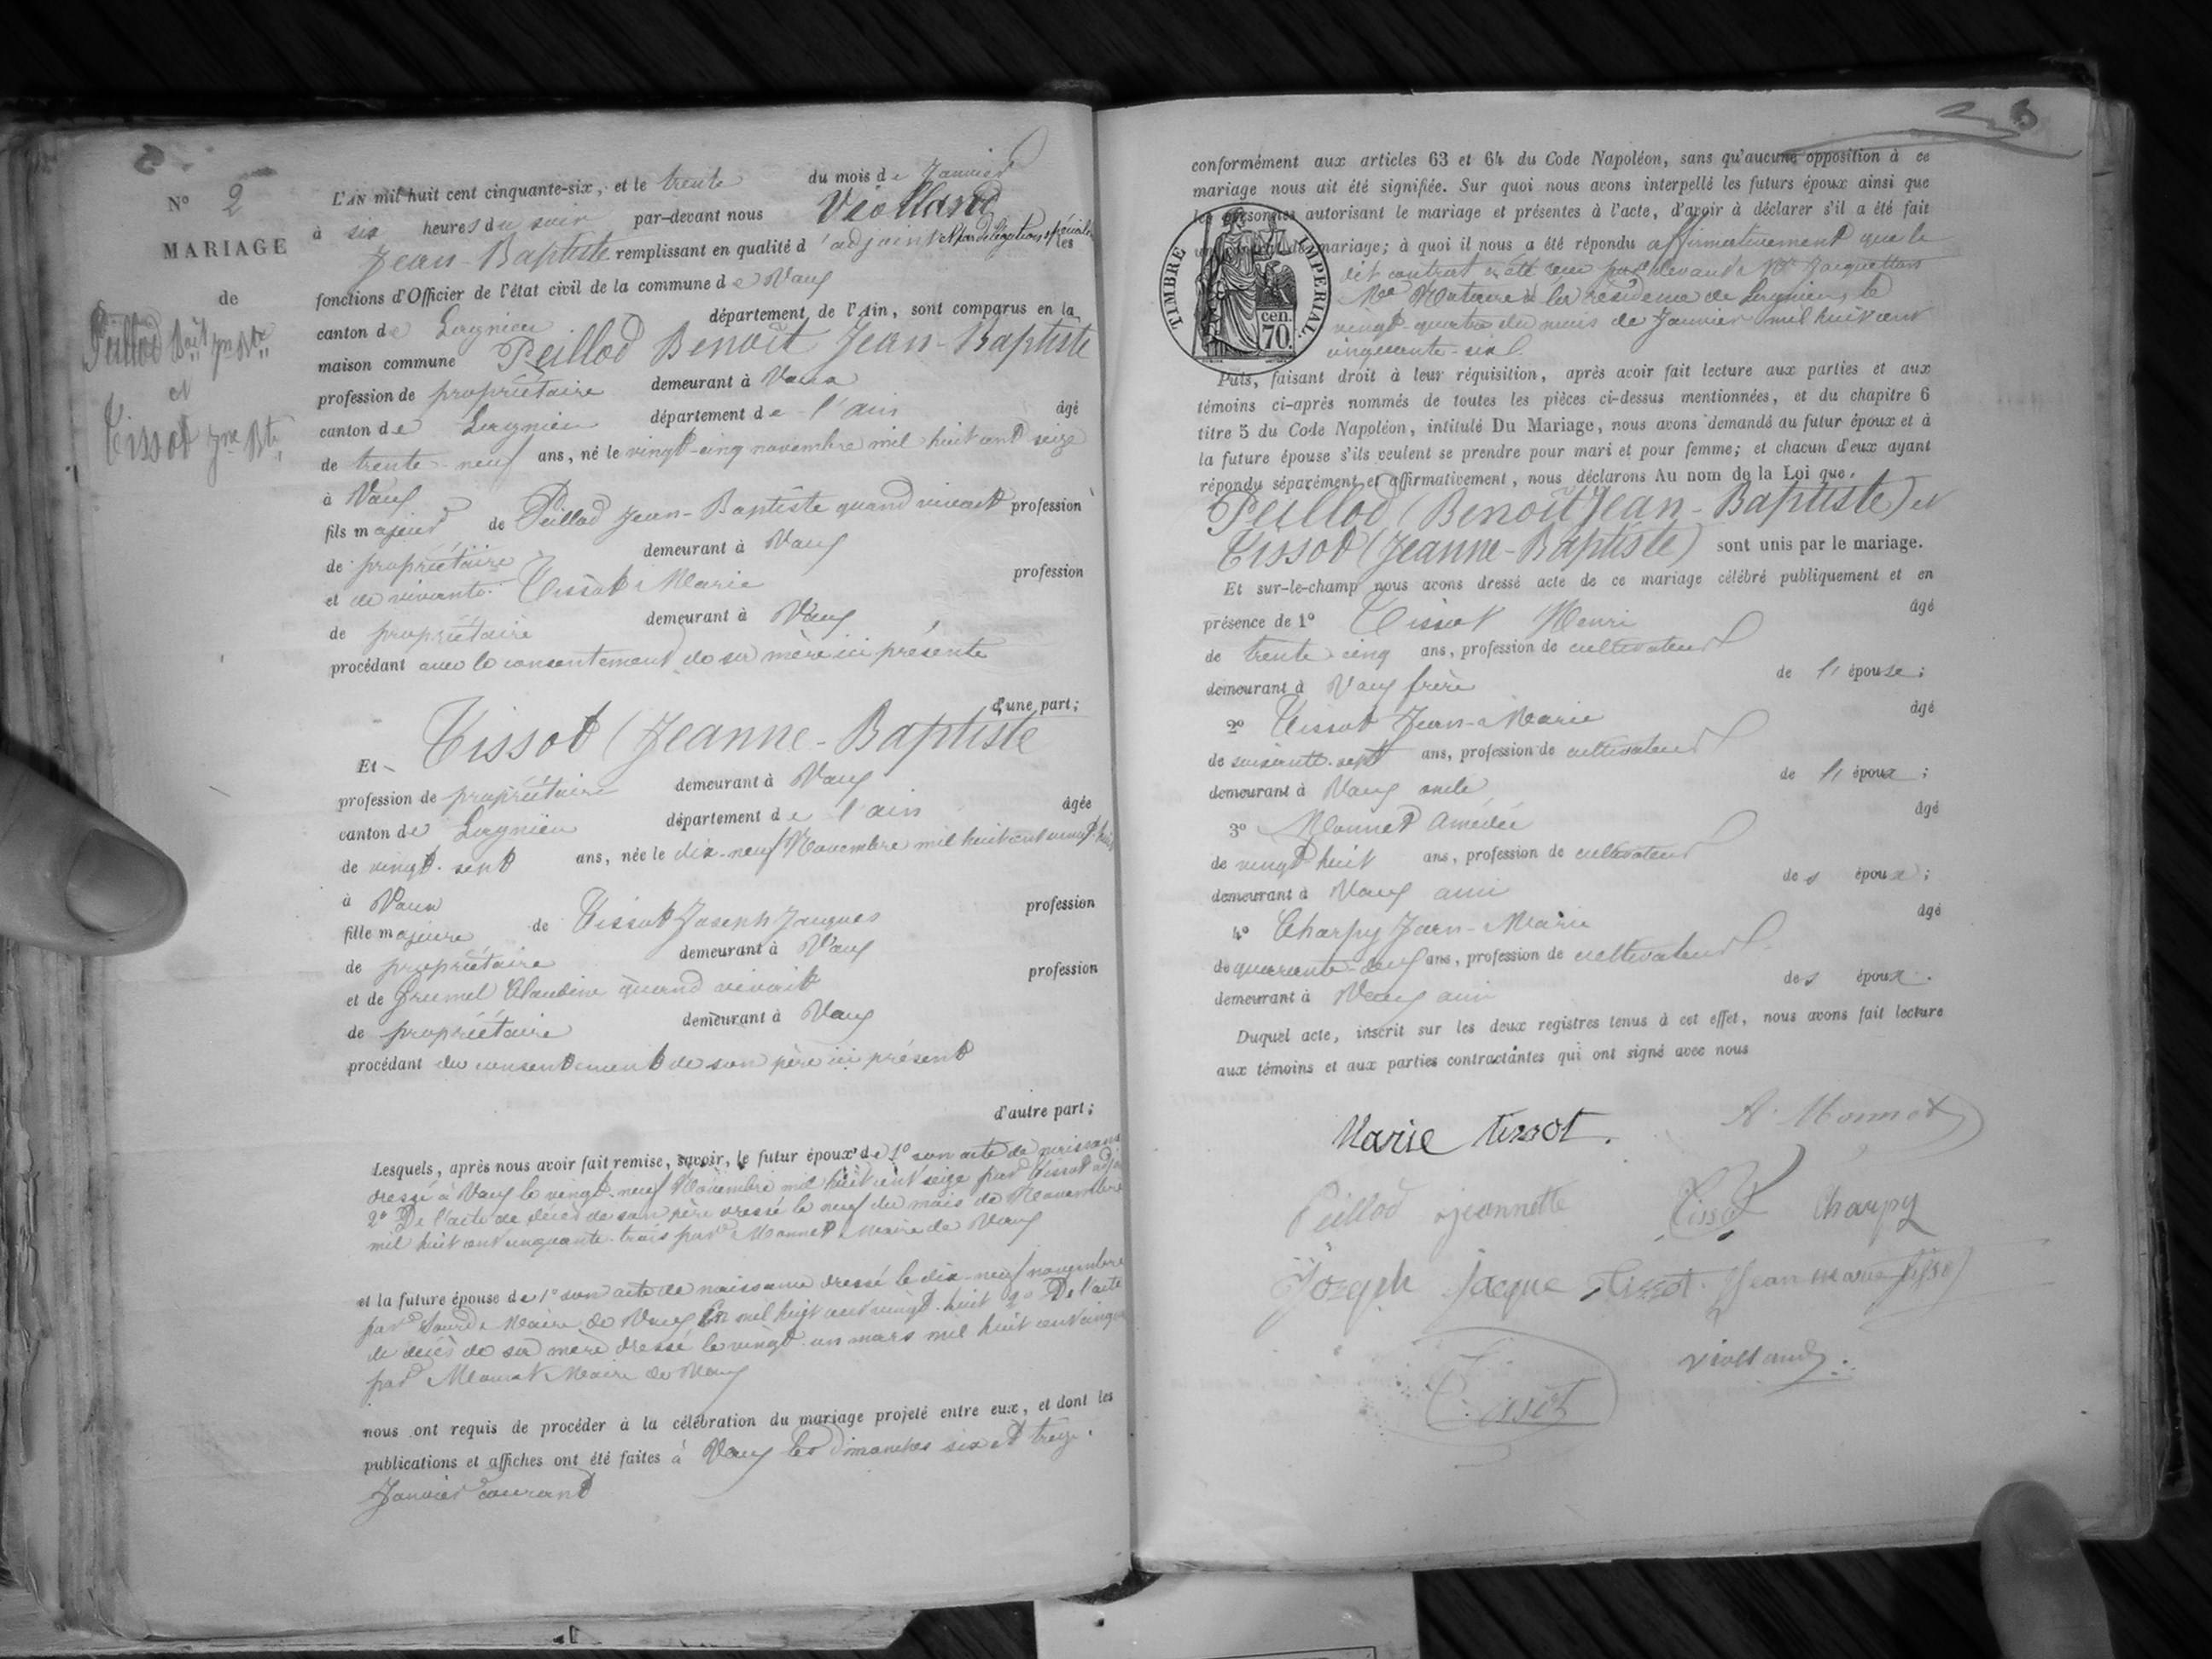 N° 2
MARIAGE
de
Peillod Boit Jn Bte
et
Tissot Jne Bte
L'AN mil huit cent cinquante-six, et le trente du mois de Janvier
à six heures du soir par-devant nous Violland
Jean-Baptiste remplissant en qualité d'adjoint et par délégation spéciale les
fonctions d'Officier de l'état civil de la commune de Vaux
canton de Lagnieu département de l'Ain, sont comparus en la
maison commune Peillod Benoît Jean-Baptiste
profession de propriétaire demeurant à Vaux
canton de Lagnieu département de l'ain âgé
de trente-neuf ans, né le vingt-cinq novembre mil huit cent seize
à Vaux
fils majeur de Peillod Jean-Baptiste quand vivait profession
de propriétaire demeurant à Vaux
et de vivante Tissot Marie profession
de propriétaire demeurant à Vaux
procédant avec le consentement de sa mère ici présente
d'une part;
Et Tissot (Jeanne-Baptiste
profession de propriétaire demeurant à Vaux
canton de Lagnieu département de l'ain âgée
de vingt-sept ans, née le dix-neuf Novembre mil huit cent vingt-huit
à Vaux
fille majeure de Tissot Joseph Jacques profession
de propriétaire demeurant à Vaux
et de Grumel Claudine quand vivait profession
de propriétaire demeurant à Vaux
procédant du consentement de son père ici présent
d'autre part;
Lesquels, après nous avoir fait remise, savoir, le futur époux de 1° son acte de naissance
dressé à Vaux le vingt-neuf Novembre mil huit cent seize par Tissot
2° De l'acte de décès de son père dressé le neuf du mois de Novembre
mil huit cent cinquante-trois par Monnet Maire de Vaux
et la future épouse de 1° son acte de naissance dressé le dix-neuf novembre
par Maire de Vaux mil huit cent vingt-huit 2° De l'acte
de décès de sa mère dressé le vingt-un mars mil huit cent
par Monnet Maire de Vaux
nous ont requis de procéder à la célébration du mariage projeté entre eux, et dont les
publications et affiches ont été faites à Vaux les dimanches six et treize
Janvier courant
conformément aux articles 63 et 64 du Code Napoléon, sans qu'aucune opposition à ce
mariage nous ait été signifiée. Sur quoi nous avons interpellé les futurs époux ainsi que
les personnes autorisant le mariage et présentes à l'acte, d'avoir à déclarer s'il a été fait
mariage; à quoi il nous a été répondu affirmativement que le
dit contrat a été reçu par devant
Notaire à la résidence de Lagnieu, le
vingt-quatre du mois de Janvier mil huit cent
cinquante-six
TIMBRE IMPERIAL.
cen.
70.
Puis, faisant droit à leur réquisition, après avoir fait lecture aux parties et aux
témoins ci-après nommés de toutes les pièces ci-dessus mentionnées, et du chapitre 6
titre 5 du Code Napoléon, intitulé Du Mariage, nous avons demandé au futur époux et à
la future épouse s'ils veulent se prendre pour mari et pour femme; et chacun d'eux ayant
répondu séparément et affirmativement, nous déclarons Au nom de la Loi que.
Peillod (Benoît Jean-Baptiste) et
Tissot (Jeanne-Baptiste) sont unis par le mariage.
Et sur-le-champ nous avons dressé acte de ce mariage célébré publiquement et en
présence de 1° Tissot Henri âgé
de trente-cinq ans, profession de cultivateur
demeurant à Vaux frère de l'épouse;
2° Tissot Jean-Marie âgé
de soixante-sept ans, profession de cultivateur
demeurant à Vaux oncle de l'époux;
3° Monnet Amédée âgé
de vingt-huit ans, profession de cultivateur
demeurant à Vaux ami des époux;
4° Charpy Jean-Marie âgé
de quarante-deux ans, profession de cultivateur
demeurant à Vaux ami des époux.
Duquel acte, inscrit sur les deux registres tenus à cet effet, nous avons fait lecture
aux témoins et aux parties contractantes qui ont signé avec nous
Marie tissot. A. Monnet
Peillod jeannette Tissot Charpy
Jozeph Jacque Tissot. Jean marie tissot
violland
Tissot